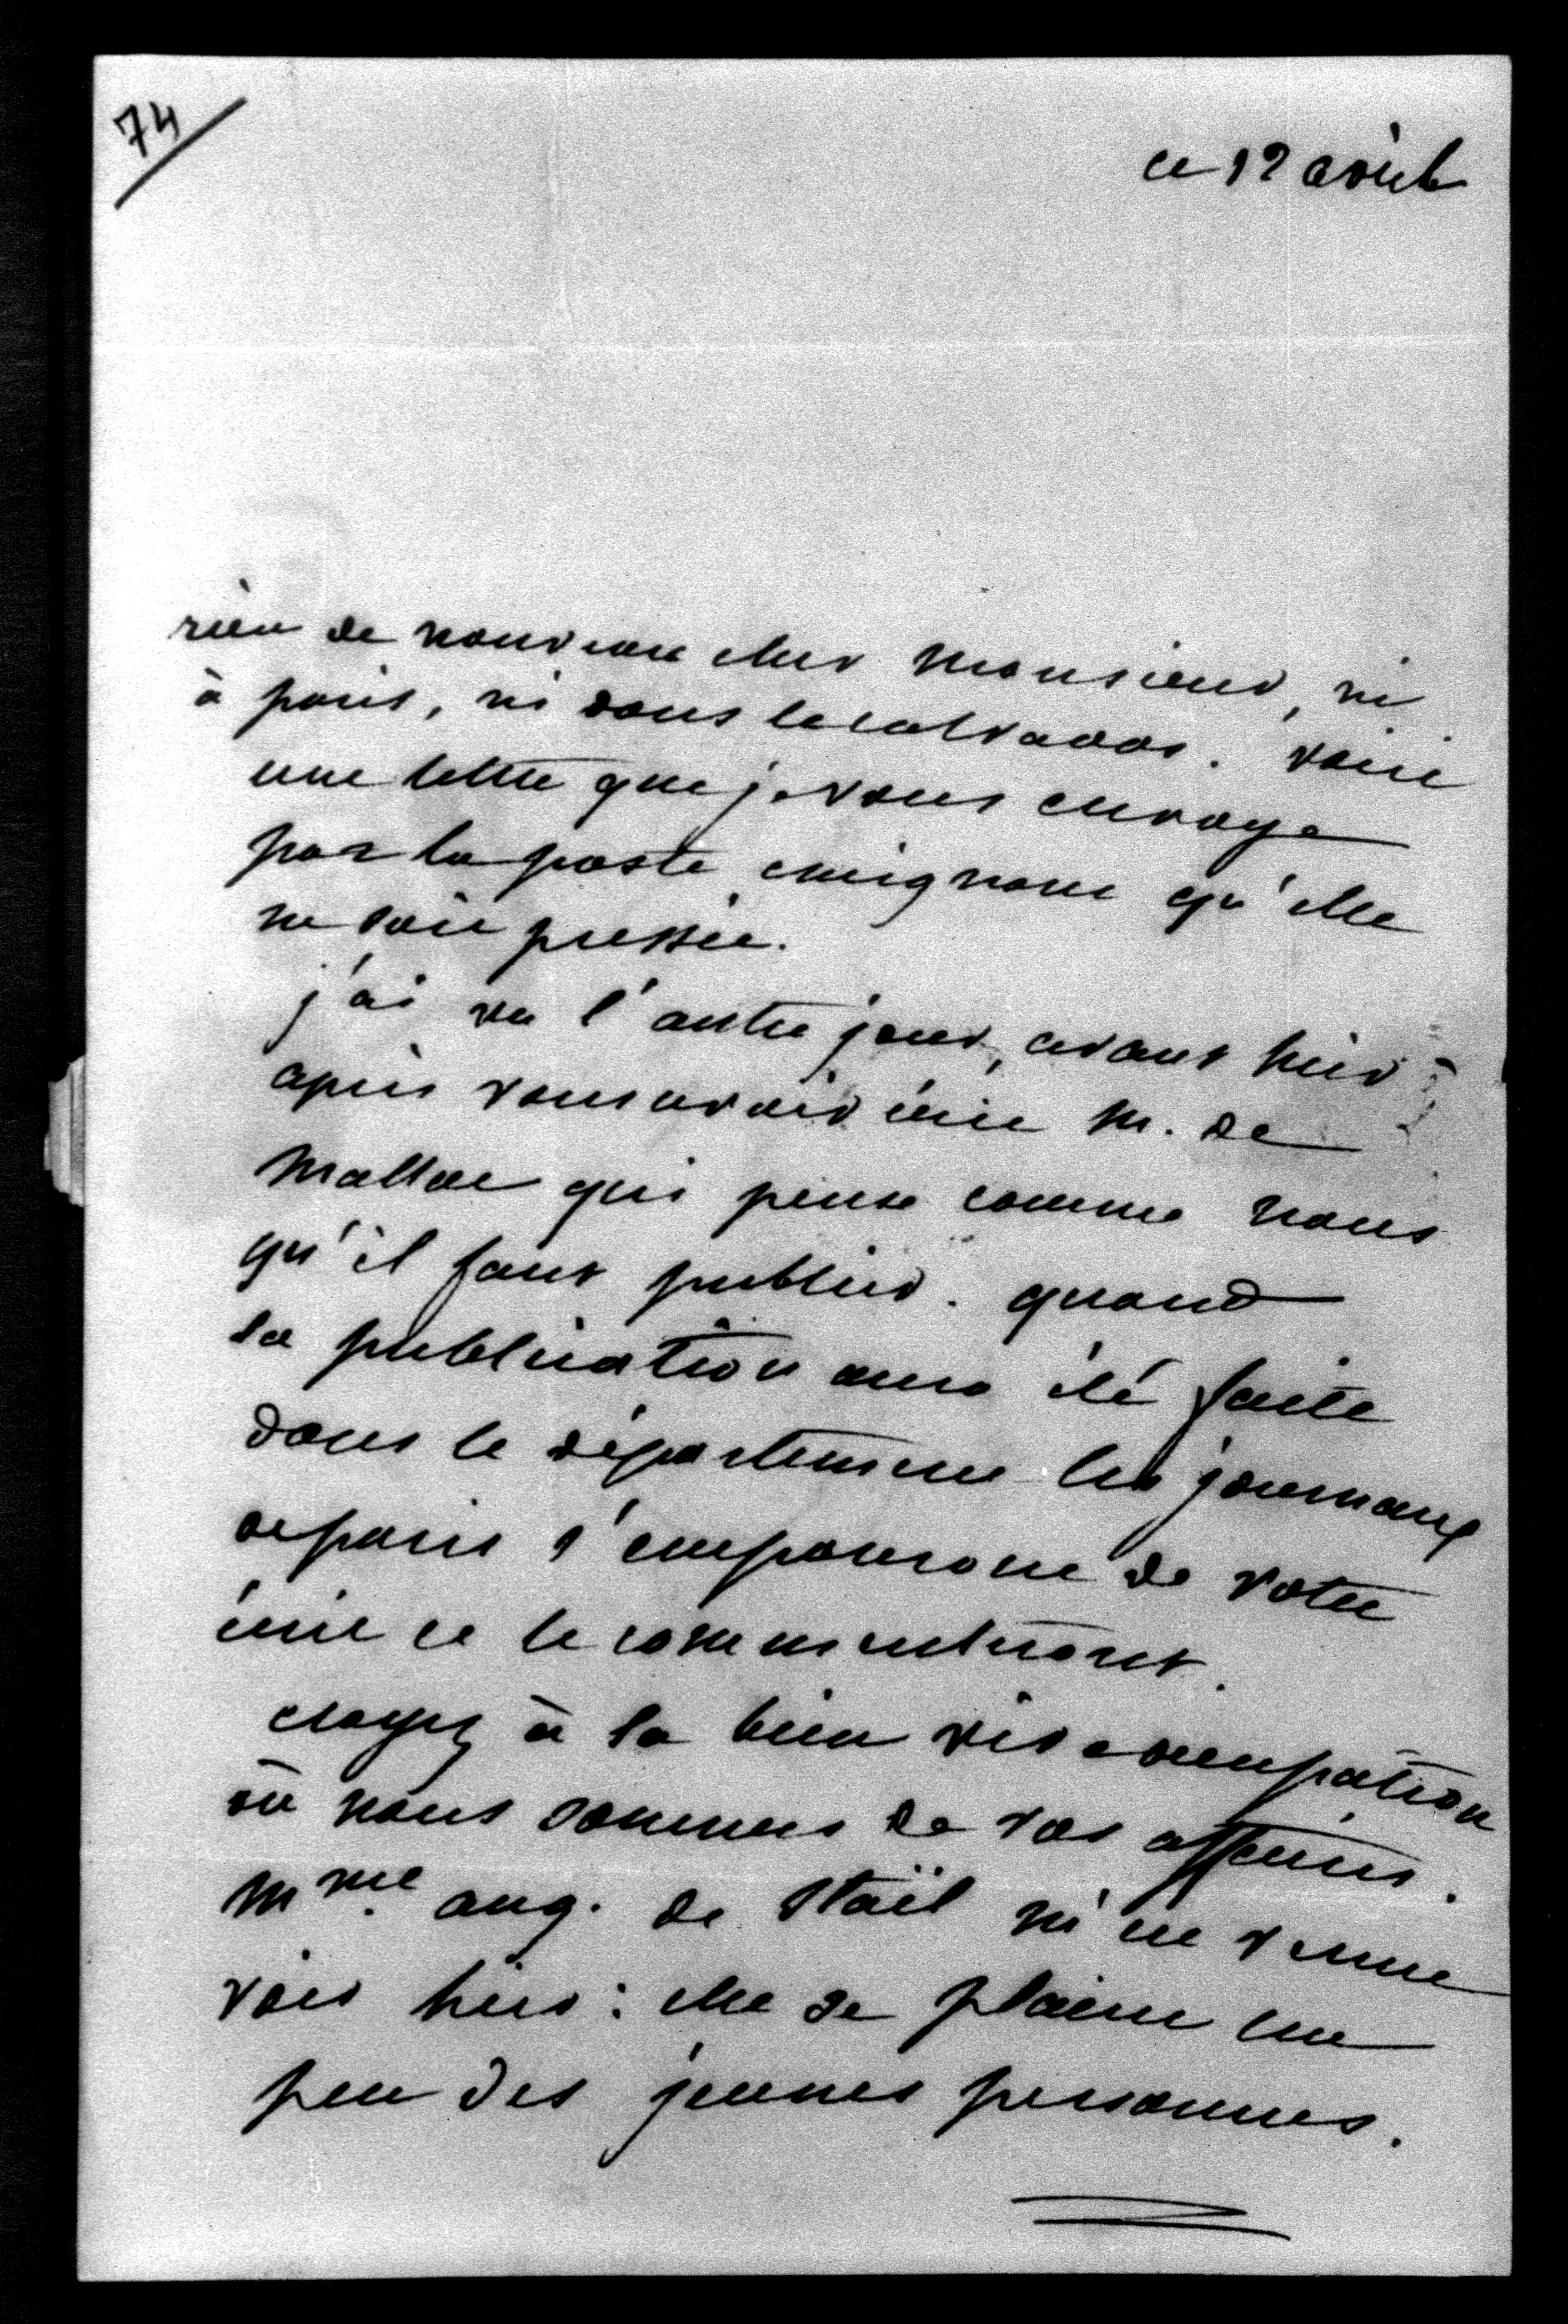 74
ce 12 avril
rien de nouveau cher Monsieur, ni
à paris, ni dans le calvados. voici
une lettre que je vous envoye
par la poste craignant qu'elle
ne soit pressée.
j'ai vu l'autre jour, avant hier
après vous avoir écrit M. de
Mallac qui pense comme nous
qu'il faut publier. quand
la publication aura été faite
dans le département les journaux
de paris s'empareront de votre
écrit et le commenteront.
croyez à la bien vive occupation
où nous sommes de vos affaires.
Mme. aug. de Staël m'est venue
voir hier : elle se plaint un
peu des jeunes personnes.